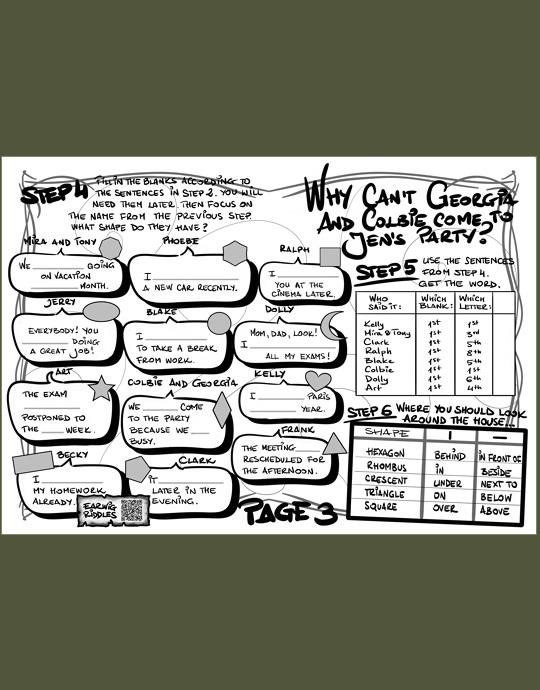 STEP 4 FILL IN THE BLANKS ACCORDING TO
THE SENTENCES IN STEP 2. YOU WILL
NEED THEM LATER. THEN FOCUS ON
THE NAME FROM THE PREVIOUS STEP.
WHAT SHAPE DO THEY HAVE?
WHY CAN'T GEORGIA
AND COLBIE COME TO
JEN'S PARTY?
MIRA AND TONY
WE ________ GOING
ON VACATION
________ MONTH.
PHOEBE
I ________
A NEW CAR RECENTLY.
RALPH
I ________
YOU AT THE
CINEMA LATER.
JERRY
EVERYBODY! YOU
________ DOING
A GREAT JOB!
BLAKE
I ________
TO TAKE A BREAK
FROM WORK.
DOLLY
MOM, DAD, LOOK!
I ________
ALL MY EXAMS!
ART
THE EXAM
________
POSTPONED TO
THE ____ WEEK.
COLBIE AND GEORGIA
WE ____ COME
TO THE PARTY
BECAUSE WE ____
BUSY.
KELLY
I ________ PARIS
________ YEAR.
FRANK
THE MEETING ________
RESCHEDULED FOR
THE AFTERNOON.
BECKY
I ________
MY HOMEWORK
ALREADY.
CLARK
IT ________
LATER IN THE
EVENING.
EARWIG
RIDDLES
PAGE 3
STEP 5 USE THE SENTENCES
FROM STEP 4.
GET THE WORD.
WHO SAID IT: WHICH BLANK: WHICH LETTER:
Kelly 1st 1st
Mira & Tony 1st 3rd
Clark 1st 5th
Ralph 1st 8th
Blake 1st 5th
Colbie 1st 1st
Dolly 1st 6th
Art 1st 4th
STEP 6 WHERE YOU SHOULD LOOK
AROUND THE HOUSE...
SHAPE | —
HEXAGON BEHIND IN FRONT OF
RHOMBUS IN BESIDE
CRESCENT UNDER NEXT TO
TRIANGLE ON BELOW
SQUARE OVER ABOVE